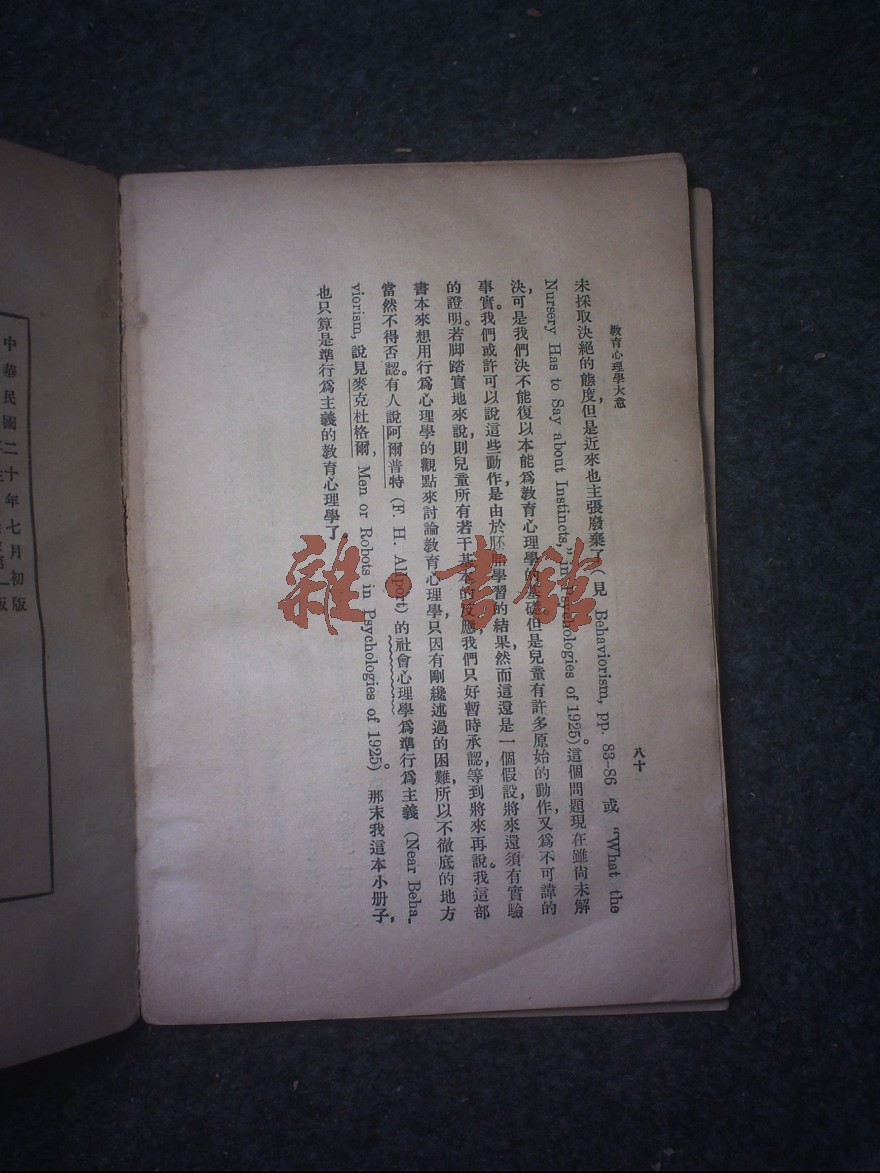 教育心理學大意
八十
未採取決絕的態度,但是近來也主張廢棄了(見 Behaviorism, pp. 83–86 或 "What the
Nursery Has to Say about Instincts," in Psychologies of 1925)。這個問題現在雖尙未解
決,可是我們決不能復以本能爲教育心理學的基礎。但是兒童有許多原始的動作,又爲不可諱的
事實。我們或許可以說這些動作,是由於胚胎學習的結果,然而這還是一個假設,將來還須有實驗
的證明。若脚踏實地來說,則兒童所有若干基本的反應,我們只好暫時承認,等到將來再說。我這部
書本來想用行爲心理學的觀點來討論教育心理學,只因有剛纔述過的困難,所以不徹底的地方
當然不得否認。有人說阿爾普特 (F. H. Allport) 的社會心理學爲準行爲主義 (Near Beha-
viorism, 說見麥克杜格爾, Men or Robots in Psychologies of 1925)。那末我這本小册子,
也只算是準行爲主義的教育心理學了。
雜·書館
中華民國二十年七月初版